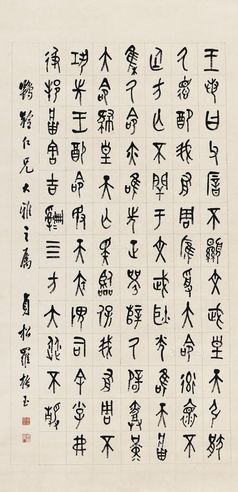 王若曰父厝不顯文武皇天弘猒
厥德配我有周膺受大命率懷不
廷方亡不閈于文武耿光唯天
集厥命亦唯先正辥厥辟堇
大命肆皇天亡斁臨保我有周不
巩先王配命敃天疾畏司余小子弗
彶邦害吉亖方大不靜
鶴齡仁兄大雅之屬 貞松羅振玉